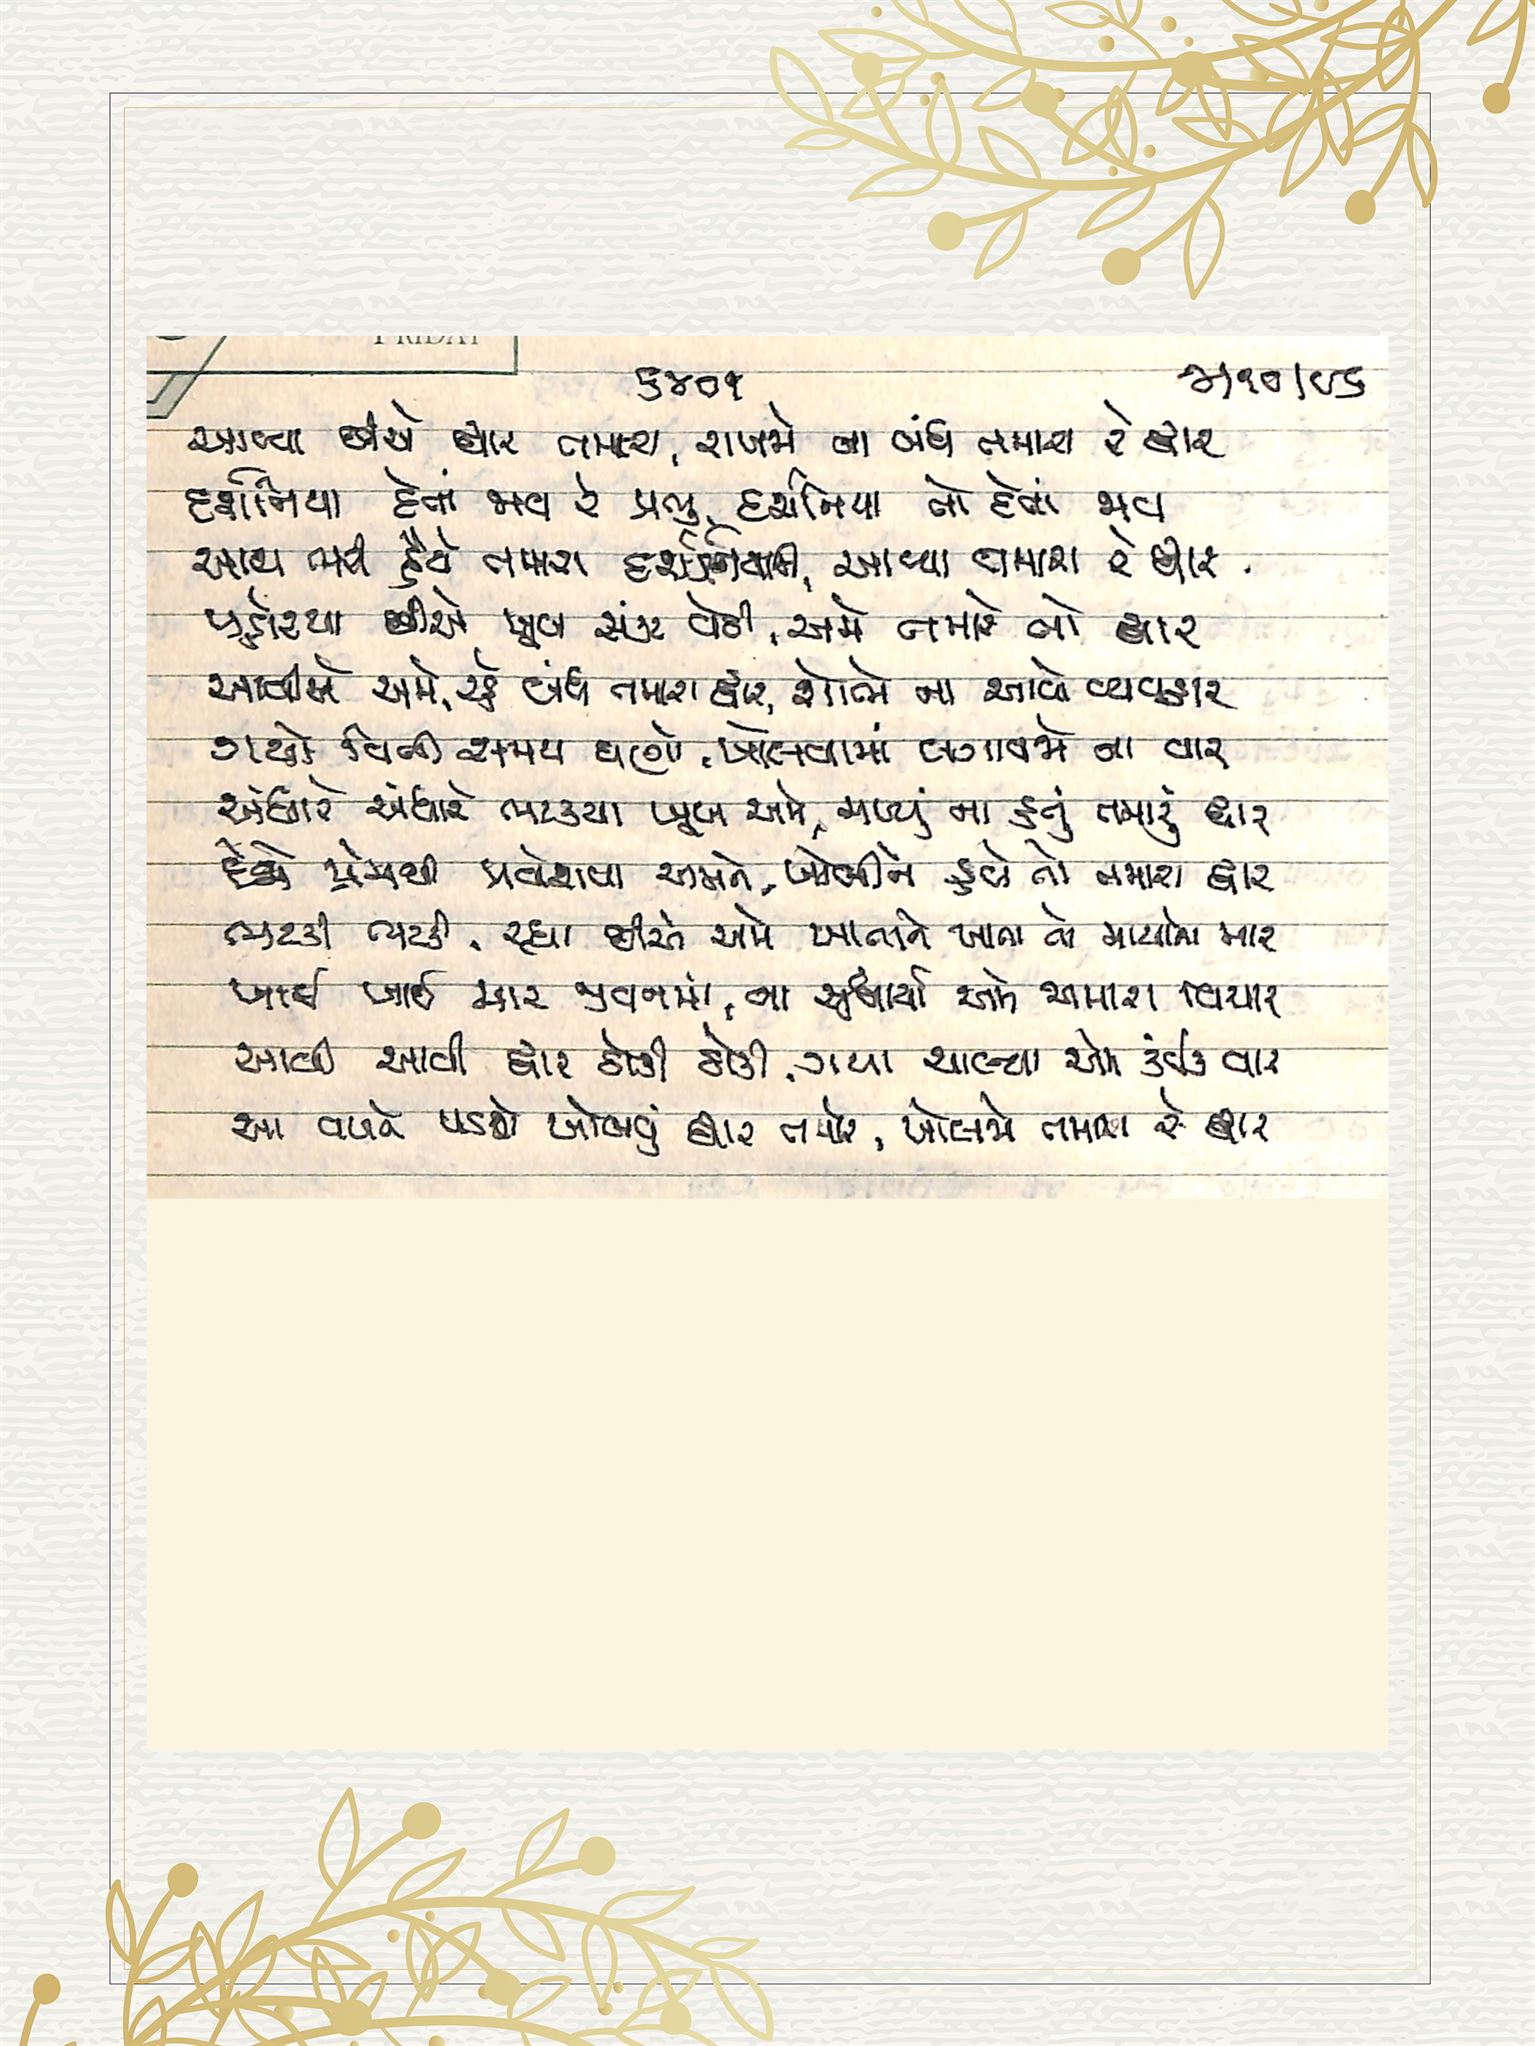 FRIDAY
૬૪૦૧
આવ્યા છીએ દ્વાર તમારા, રાખજો ના બંધ તમારા રે દ્વાર
દર્શનિયા દેતાં જાવ રે પ્રભુ, દર્શનિયા તો દેતાં જાવ
આશ ભરી હૈયે તમારા દર્શનની, આવ્યા તમારા રે દ્વાર.
પહોંચ્યા છીએ ખૂબ સંકટ વેઠી, અમે તમારે તો દ્વાર
આવીએ અમે, રહે બંધ તમારા દ્વાર, શોભે ના આવો વ્યવહાર
ગયો વિતી સમય ઘણો, ખોલવામાં લગાવજો ના વાર
અંધારે અંધારે ભટક્યા ખૂબ અમે, મળ્યું ના હતું તમારું દ્વાર
દેજો પ્રેમથી પ્રવેશવા અમને, ખોલીને હવે તો તમારા દ્વાર
ભટકી ભટકી, રહ્યા છીએ અમે ખાતાને ખાતા તો માયાના માર
ખાઈ ખાઈ માર જીવનમાં, ના સુધાર્યા અમે અમારા વિચાર
આવી આવી દ્વાર ઠોકી ઠોકી, ગયા ચાલ્યા એમ કંઈક વાર
આ વખતે પડશે ખોલવું દ્વાર તમારે, ખોલજો તમારા રે દ્વાર